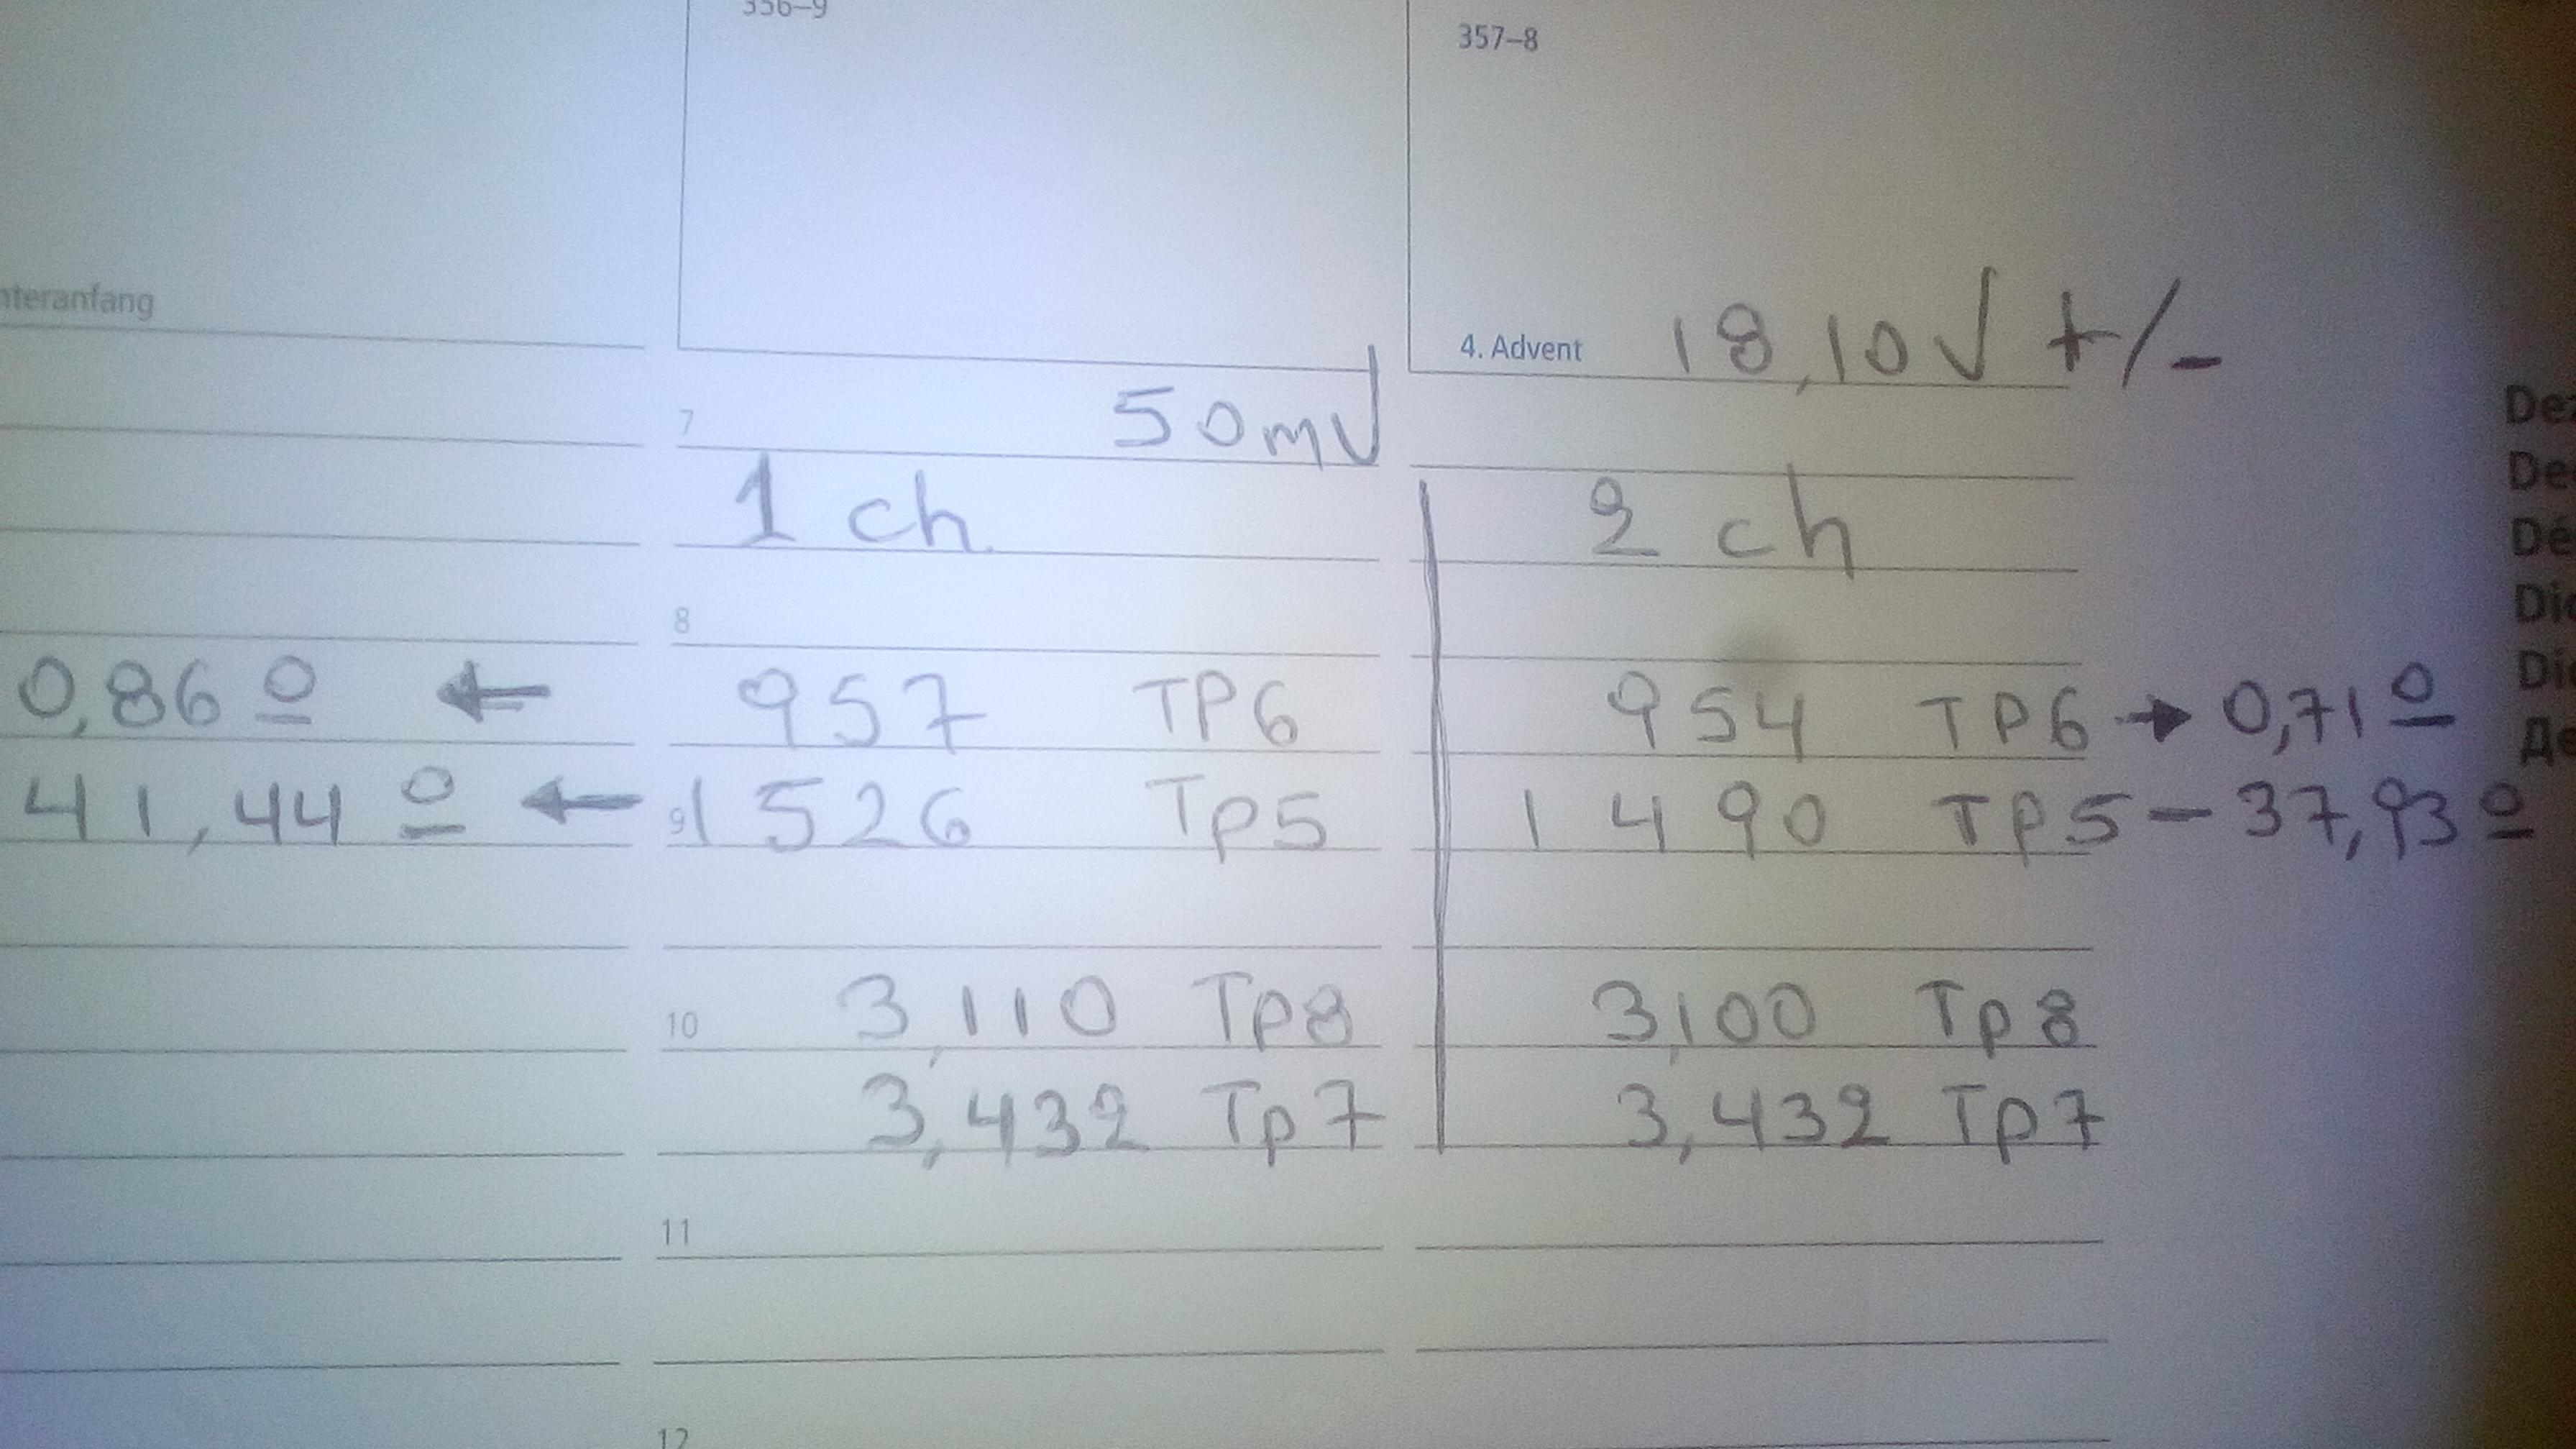 356–9
357–8
nteranfang
4. Advent 18,10V +/-
7 50mV
1 ch 2 ch
8
0,86º ← 957 TP6 954 TP6 → 0,71º
41,44º ← 9 1526 TP5 1490 TP5 – 37,93º
10 3,110 TP8 3,100 TP8
3,432 TP7 3,432 TP7
11
12
De
De
Dé
Di
Di
Де